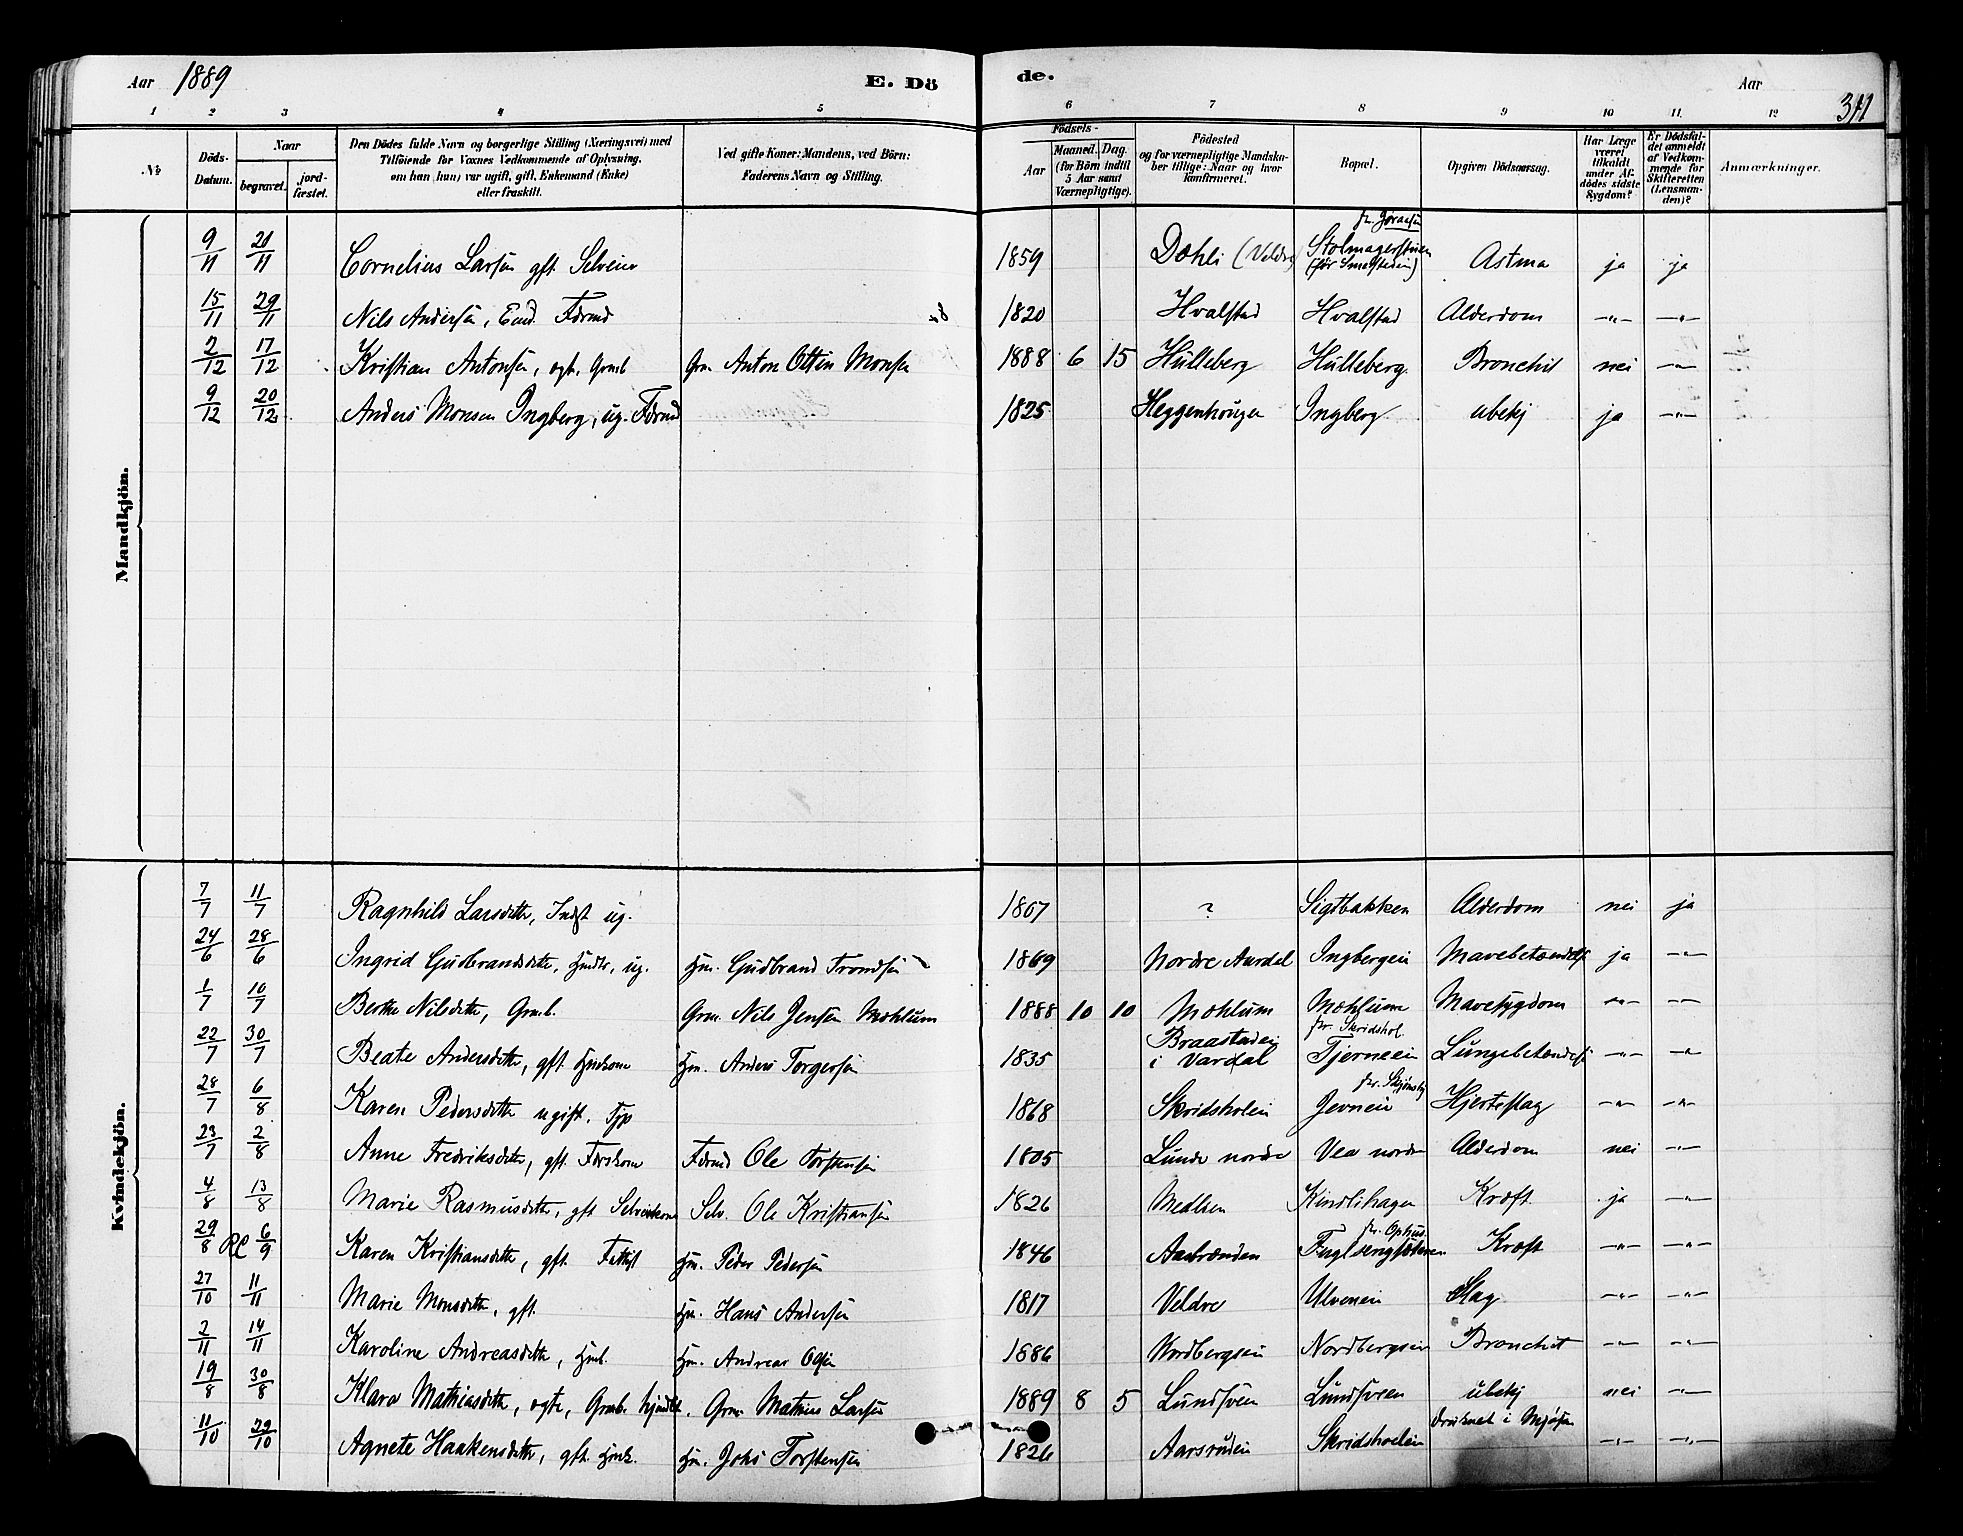 Aar 1889 E. Dö de. Aar 311
1 2 3 4 5 6 7 8 9 10 11. 12
№ Döds-Datum. Naar begravet. jord-fæstet. Den Dödes fulde Navn og borgerlige Stilling (Næringsvei) med Tilföiende for Voxnes Vedkommende af Oplysning, om han (hun) var ugift, gift, Enkemand (Enke) eller fraskilt. Ved gifte Koner: Mandens, ved Börn: Faderens Navn og Stilling. Födsels- Aar Maaned. Dag. (for Börn indtil 5 Aar samt Værnepligtige). Födested og for værnepligtige Mandska-ber tillige: Naar og hvor konfirmeret. Bopæl. Opgiven Dödsaarsag. Har Læge været tilkaldt under Af-dödes sidste Sygdom? Er Dödsfal-det anmeldt af Vedkom-mende for Skifteretten (Lensman-den)? Anmærkninger.
Mandkjön.
9/11 21/11 Cornelius Larsen gft. Selveier 1859 Dæhli (Veldre) Astma ja ja
15/11 29/11 Nils Andersen, Enk. Fdrmd 1820 Hvalstad Hvalstad Alderdom -"- -"-
2/12 17/12 Kristian Antonsen, ægb. Grmb Grm. Anton Ottin Monsen 1888 6 15 Hulleberg Hulleberg Bronchit nei -"-
9/12 20/12 Anders Monsen Ingberg, ug. Fdrmd 1825 Heggenhougen Ingberg ubekj ja -"-
Kvindekjön.
7/7 11/7 Ragnhild Larsdtr, Indst ug. 1807 ? Sigtbakken Alderdom nei ja
24/6 28/6 Ingrid Gudbrandsdtr, ug. Hm. Gudbrand Trondsen 1869 Nordre Aurdal Ingbergeie Mavebetændelse ja -"-
1/7 10/7 Berthe Nilsdtr, Grmb. Grm. Nils Jensen Mæhlum 1888 10 10 Mæhlum Mæhlum Mavesygdom -"- -"-
22/7 30/7 Beate Andersdtr, gft. Hm. Anders Torgersen 1835 Braastadeie i Vardal fr. Skridshol Tjerneeie Lungebetændelse -"- -"-
28/7 6/8 Karen Pedersdtr ugift. Tjp 1868 Skridsholeie fr. Skjønsby Jevneie Hjerteslag -"- -"-
23/7 2/8 Anne Fredriksdtr, gft. Fdrskone Fdrmd Ole Torstensen 1805 Lunde nordre Vea nordre Alderdom nei -"-
4/8 13/8 Marie Rasmusdtr, gft Selveierkone Selv. Ole Kristiansen 1826 Medlien Kindlihagen Kræft ja -"-
29/8 6/9 Karen Kristiansdtr, gft. Fattigl Hm. Peder Pedersen 1846 fr. Ophus Kræft -"- -"-
27/10 11/11 Marie Monsdtr, gft. Hm. Hans Andersen 1817 Veldre Ulveneie Slag -"- -"-
2/11 14/11 Karoline Andreasdtr, Hmb. Hm. Andreas Olsen 1886 Nordbergseie Nordbergseie Bronchit -"- -"-
19/8 30/8 Klara Mathiasdtr, ægte, Grmb. Grm. Mathias Larsen 1889 8 5 Lundsveen Lundsveen ubekj nei -"-
11/10 29/10 Agnete Haakensdtr, gft. Hm. Johs Torstensen 1826 Aarsrudeie Skridsholeie druknet i Mjøsen -"- -"-